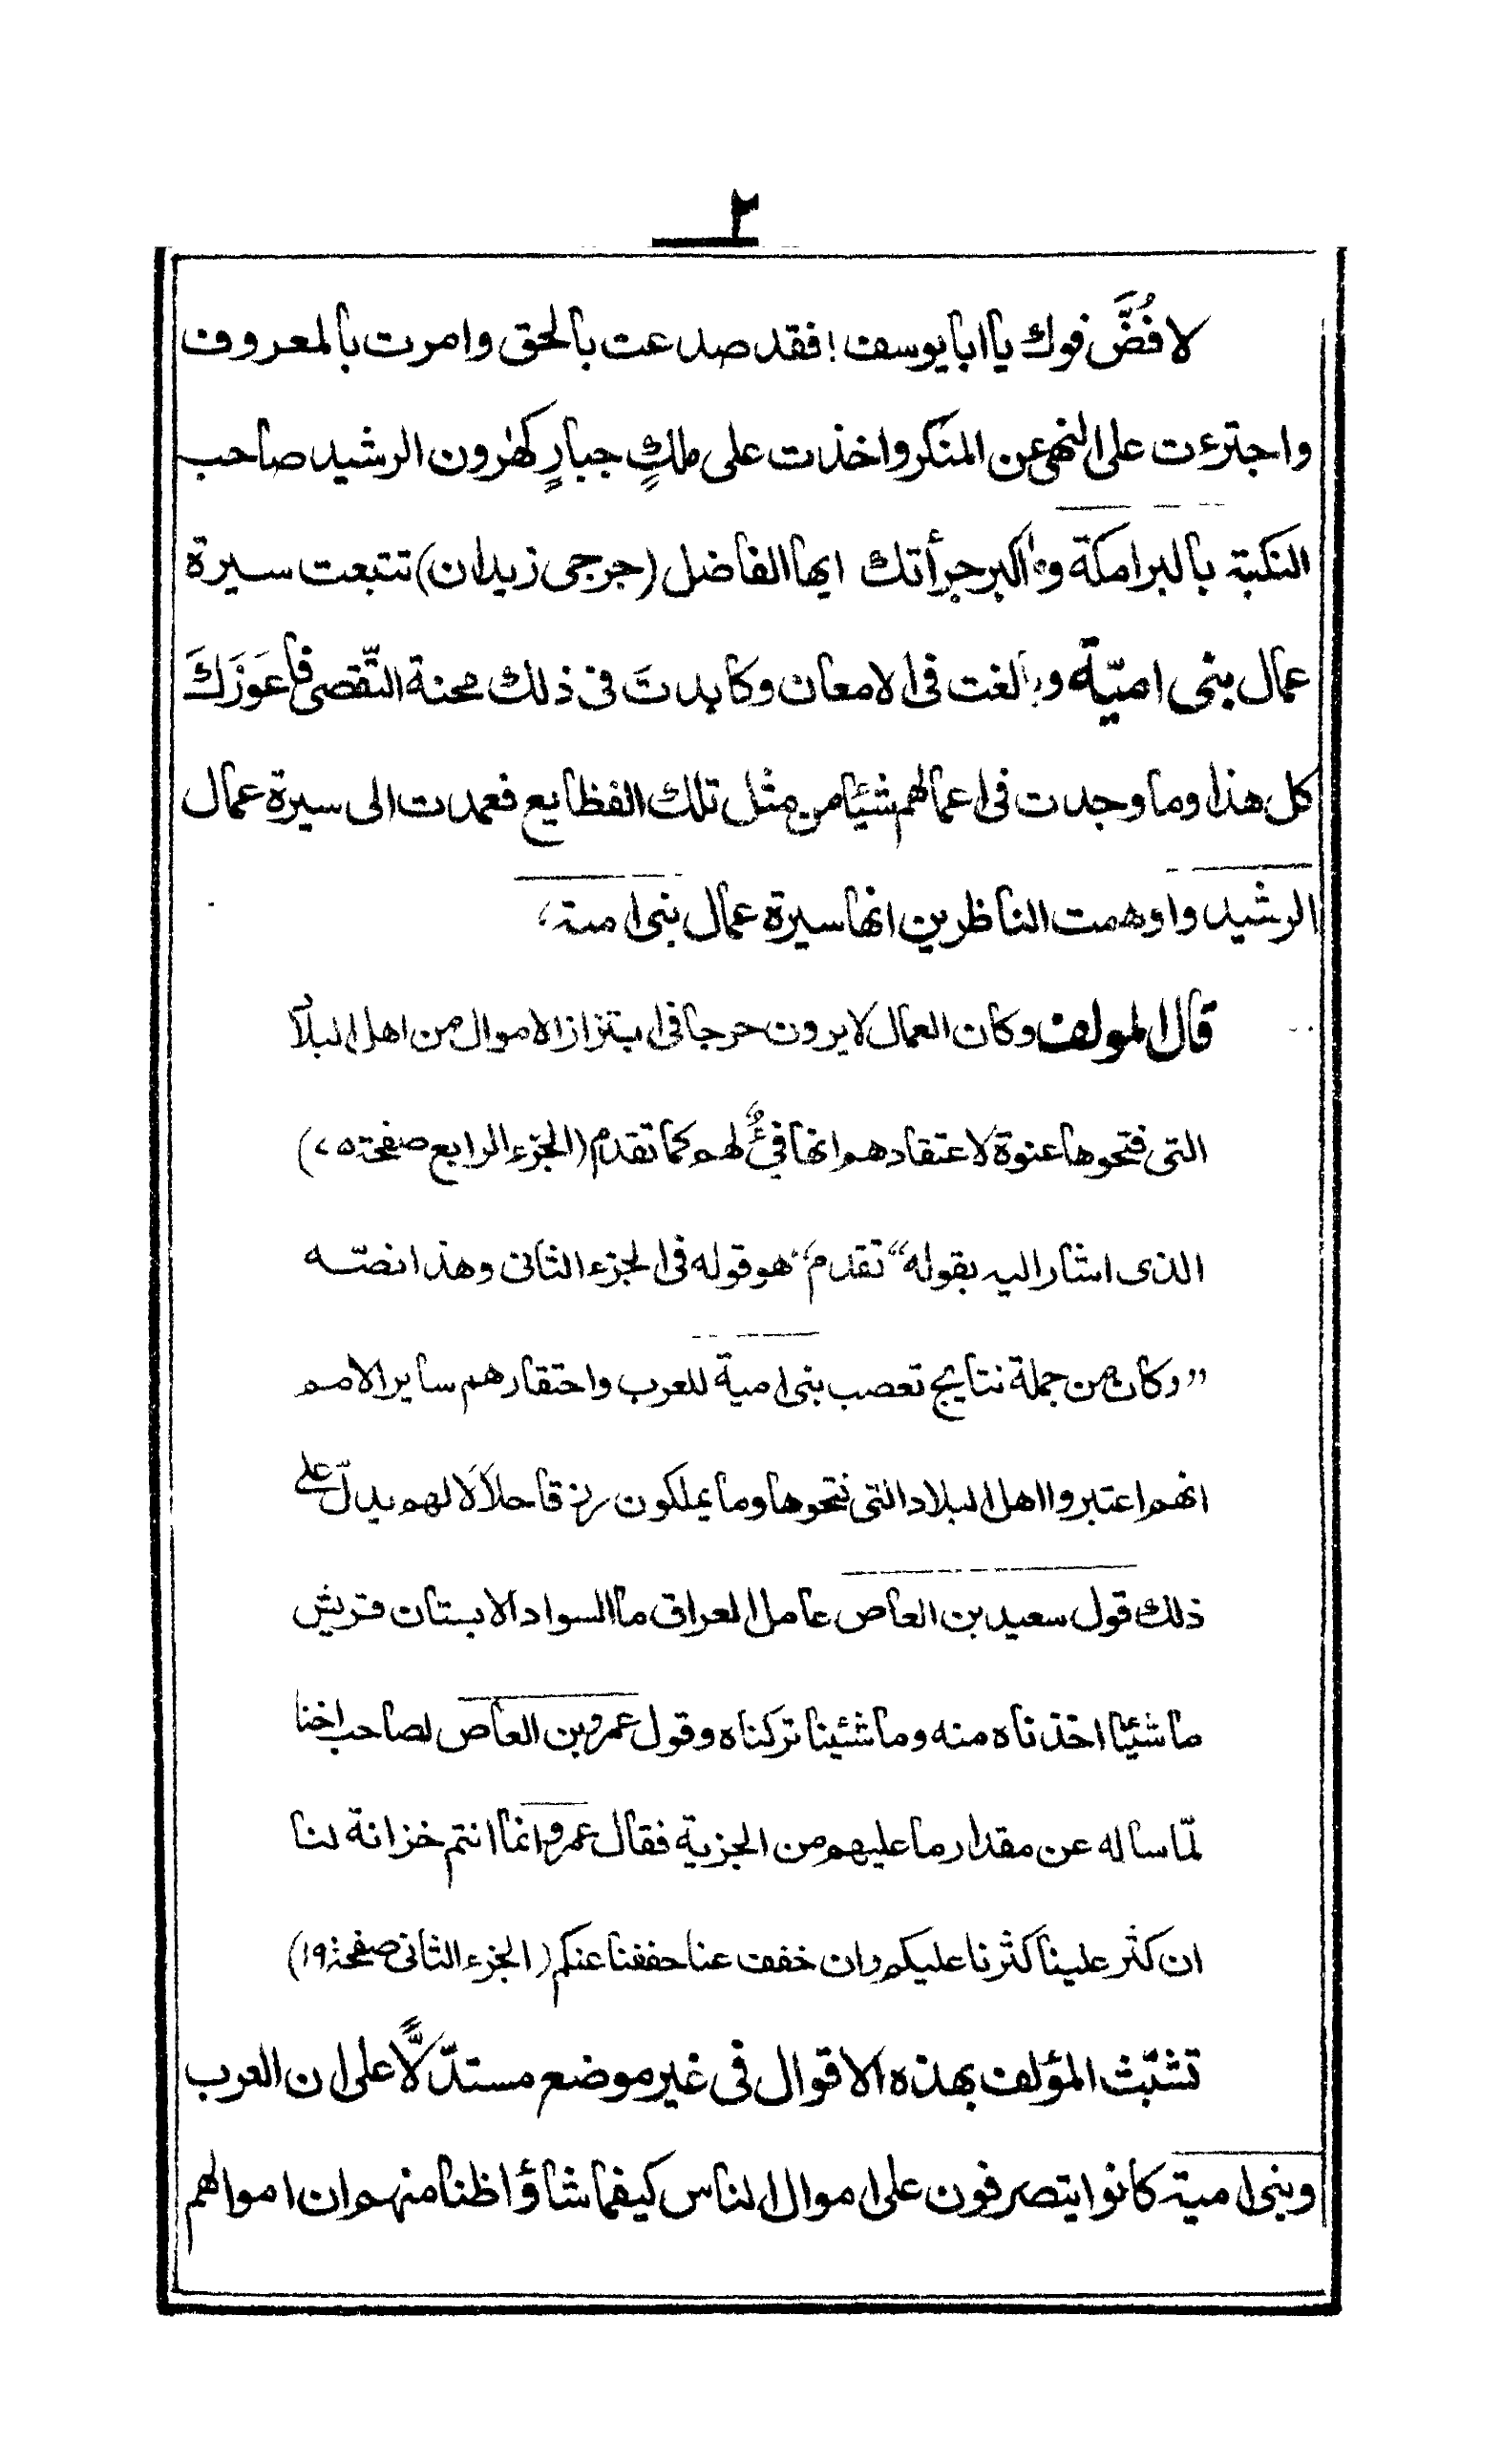 ٢
لا فُضَّ فوك يا ابا يوسف! فقد صدعت بالحق وامرت بالمعروف
واجترءت على النهى عن المنكر واخذت على ملكٍ جبارٍ كهٰرون الرشيد صاحب
النكبة بالبرامكة وما اكبر جرأتك ايها الفاضل (جرجى زيدان) تتبعت سيرة
عمال بنى اميّة وبالغت فى الامعان وكابدتَ فى ذلك محنة التّقصى فاَعوَزَكَ
كل هذا وما وجدت فى اعمالهم شيئا من مثل تلك الفظايع فعمدت الى سيرة عمال
الرشيد واوهمت الناظرين انها سيرة عمال بنى امية،
قال المولف وكان العمال لا يرون حرجا فى ابتزاز الاموال من اهل البلاد
التى فتحوها عنوة لاعتقادهم انها فئٌ لهم كما تقدم (الجزء الرابع صفحة ٧٥)
الذى اشار اليه بقوله "تقدم" هو قوله فى الجزء الثانى وهذا نصّه
"وكان من جملة نتايج تعصب بنى امية للعرب واحتقارهم ساير الامم
انهم اعتبروا اهل البلاد التى فتحوها وما يملكون رزقا حلالًا لهم يدلّ على
ذلك قول سعيد بن العاص عامل العراق ما السواد الا بستان قريش
ما شئنا اخذناه منه وما شئنا تركناه وقول عمرو بن العاص لصاحب اخنا
لمّا ساله عن مقدار ما عليهم من الجزية فقال عمرو انما انتم خزانة لنا
ان كثر علينا كثرنا عليكم وان خفف عنا خففنا عنكم (الجزء الثانى صفحة ١٩)
تشبّث المؤلف بهذه الاقوال فى غير موضع مستدّلًّا على ان العرب
وبنى امية كانوا يتصرفون على اموال الناس كيفما شاؤا ظنا منهم ان اموالهم